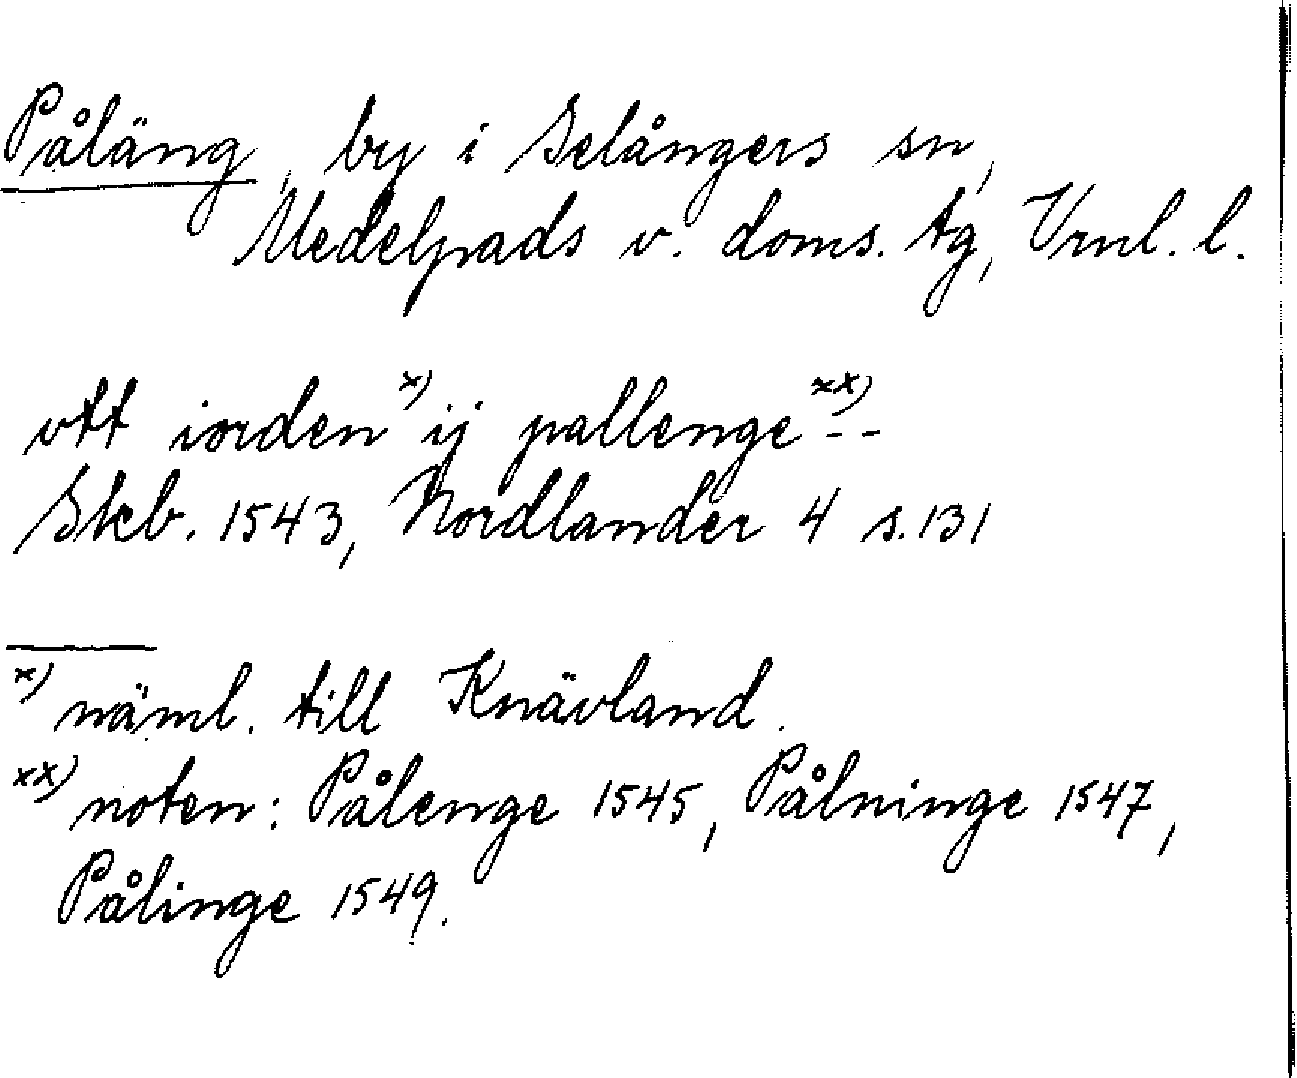 Påläng, by i Selångers sn,
Medelpads v. doms. tg, Vrnl. l.
vtt iorden x) ij pallenge xx) - -
Skb. 1543, Nordlander 4 s. 131
x) näml. till Knävland.
xx) noten: Pålenge 1545, Pålninge 1547,
Pålinge 1549.